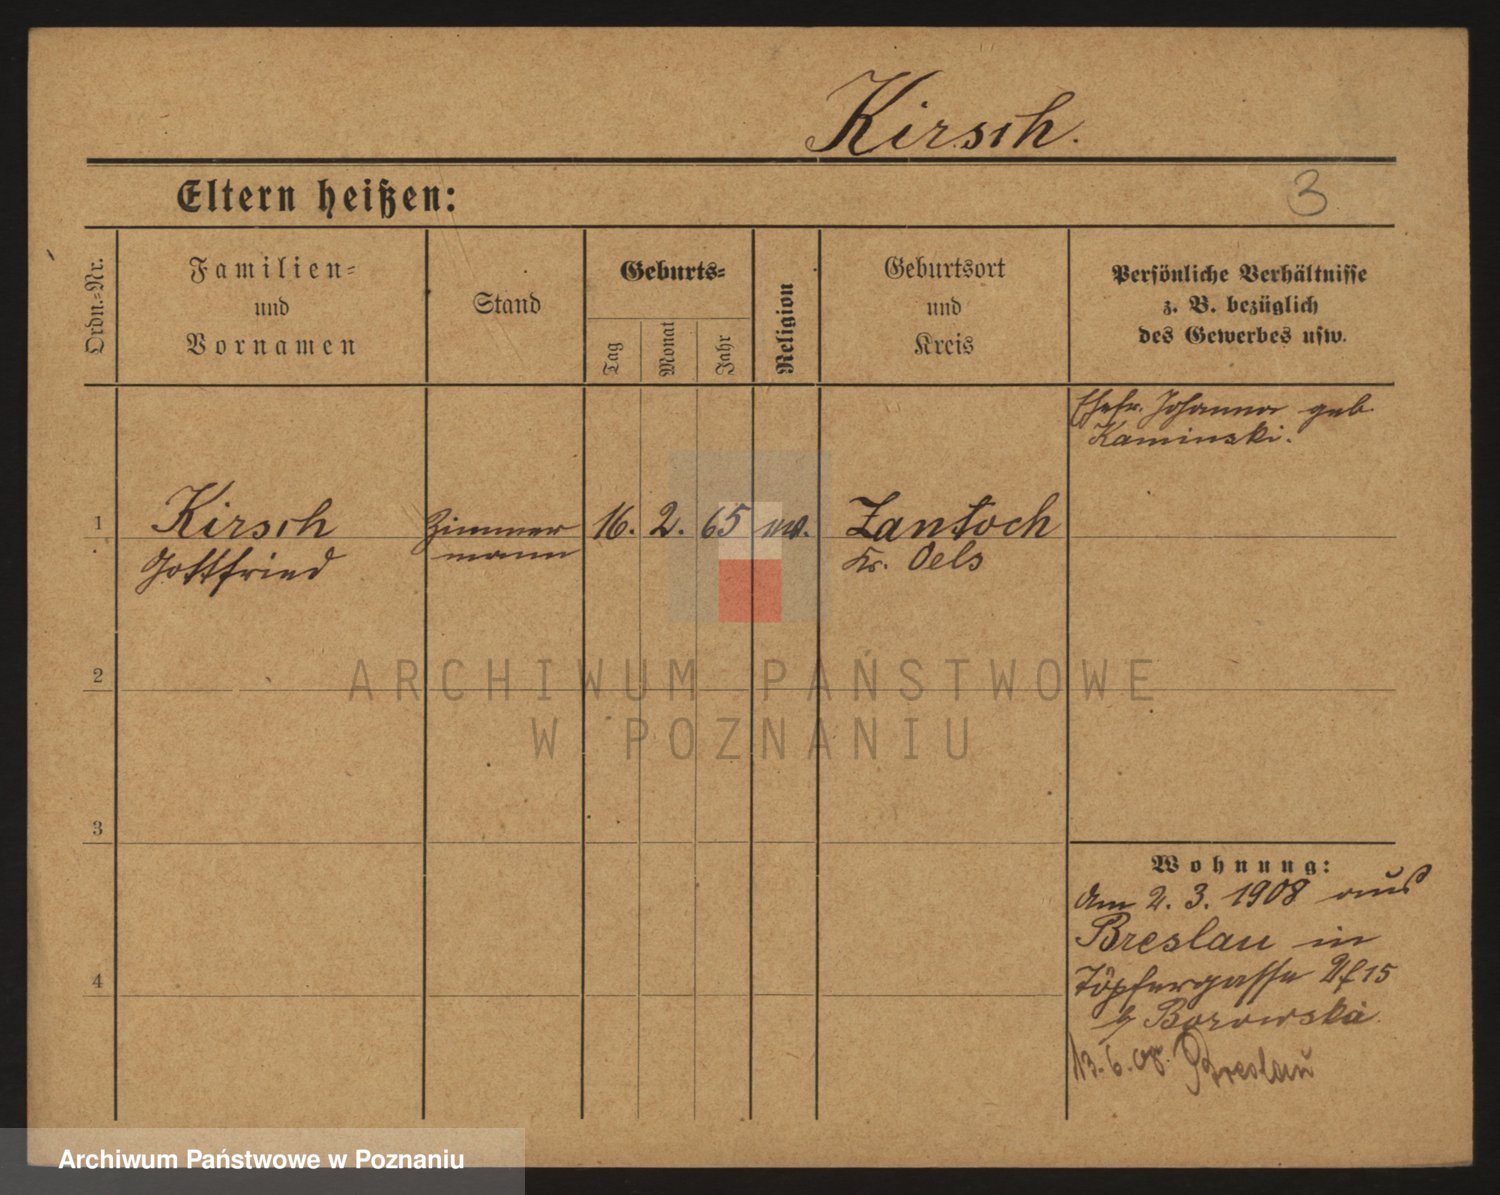 Kirsch.
Eltern heißen:
3
Ordn.-Nr.
Familien-
und
Vornamen
Stand
Geburts-
Tag
Monat
Jahr
Religion
Geburtsort
und
Kreis
Persönliche Verhältnisse
z. B. bezüglich
des Gewerbes usw.
Ehefr. Johanna geb
Kaminski.
1
Kirsch
Gottfried
Zimmer
mann
16.
2.
65
ev.
Zantoch
Kr. Oels
2
ARCHIWUM PAŃSTWOWE
W POZNANIU
3
Wohnung:
Am 2. 3. 1908 aus
Breslau in
Töpfergasse 15
b Borowski
4
13. 6. 08. Breslau
Archiwum Państwowe w Poznaniu